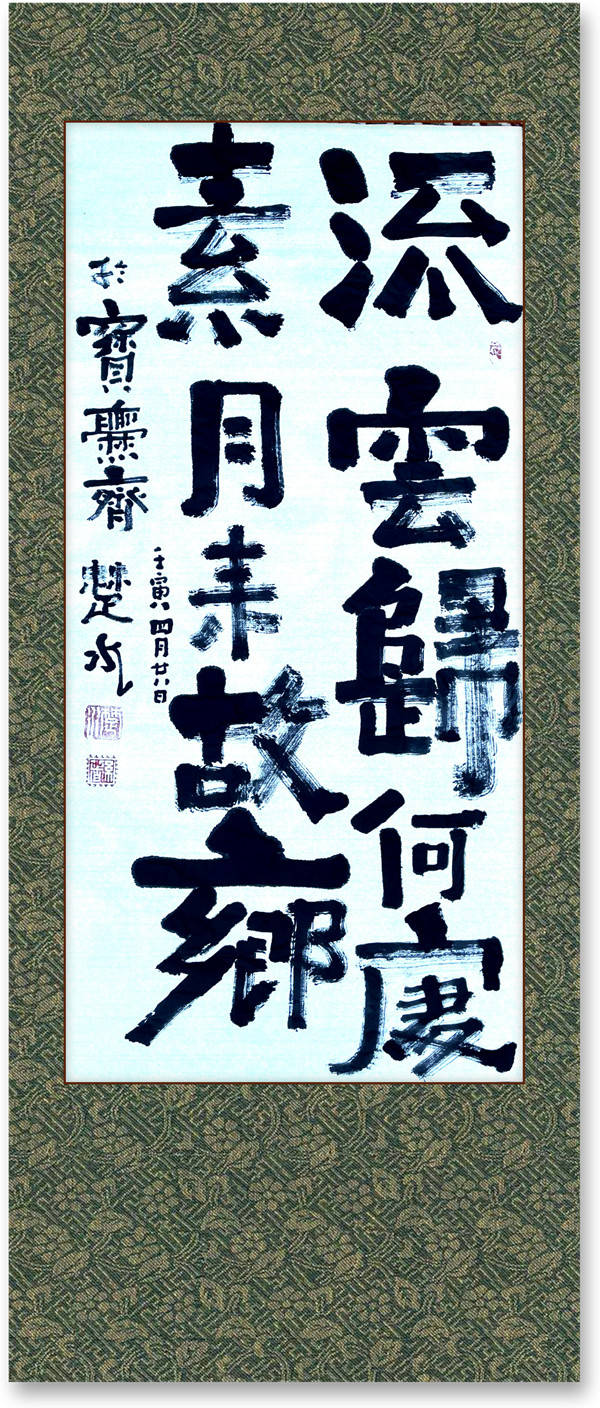 流雲歸何處
素月来故鄉
壬寅四月廿八日
於寶齋 楚水